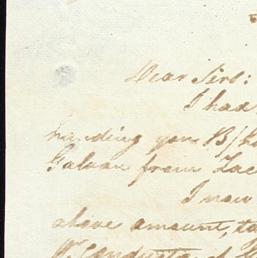 Dear Sirs:
I had
handing you B/L
Galvan from Zac
I now
above amount, ta
Pr Conducta of